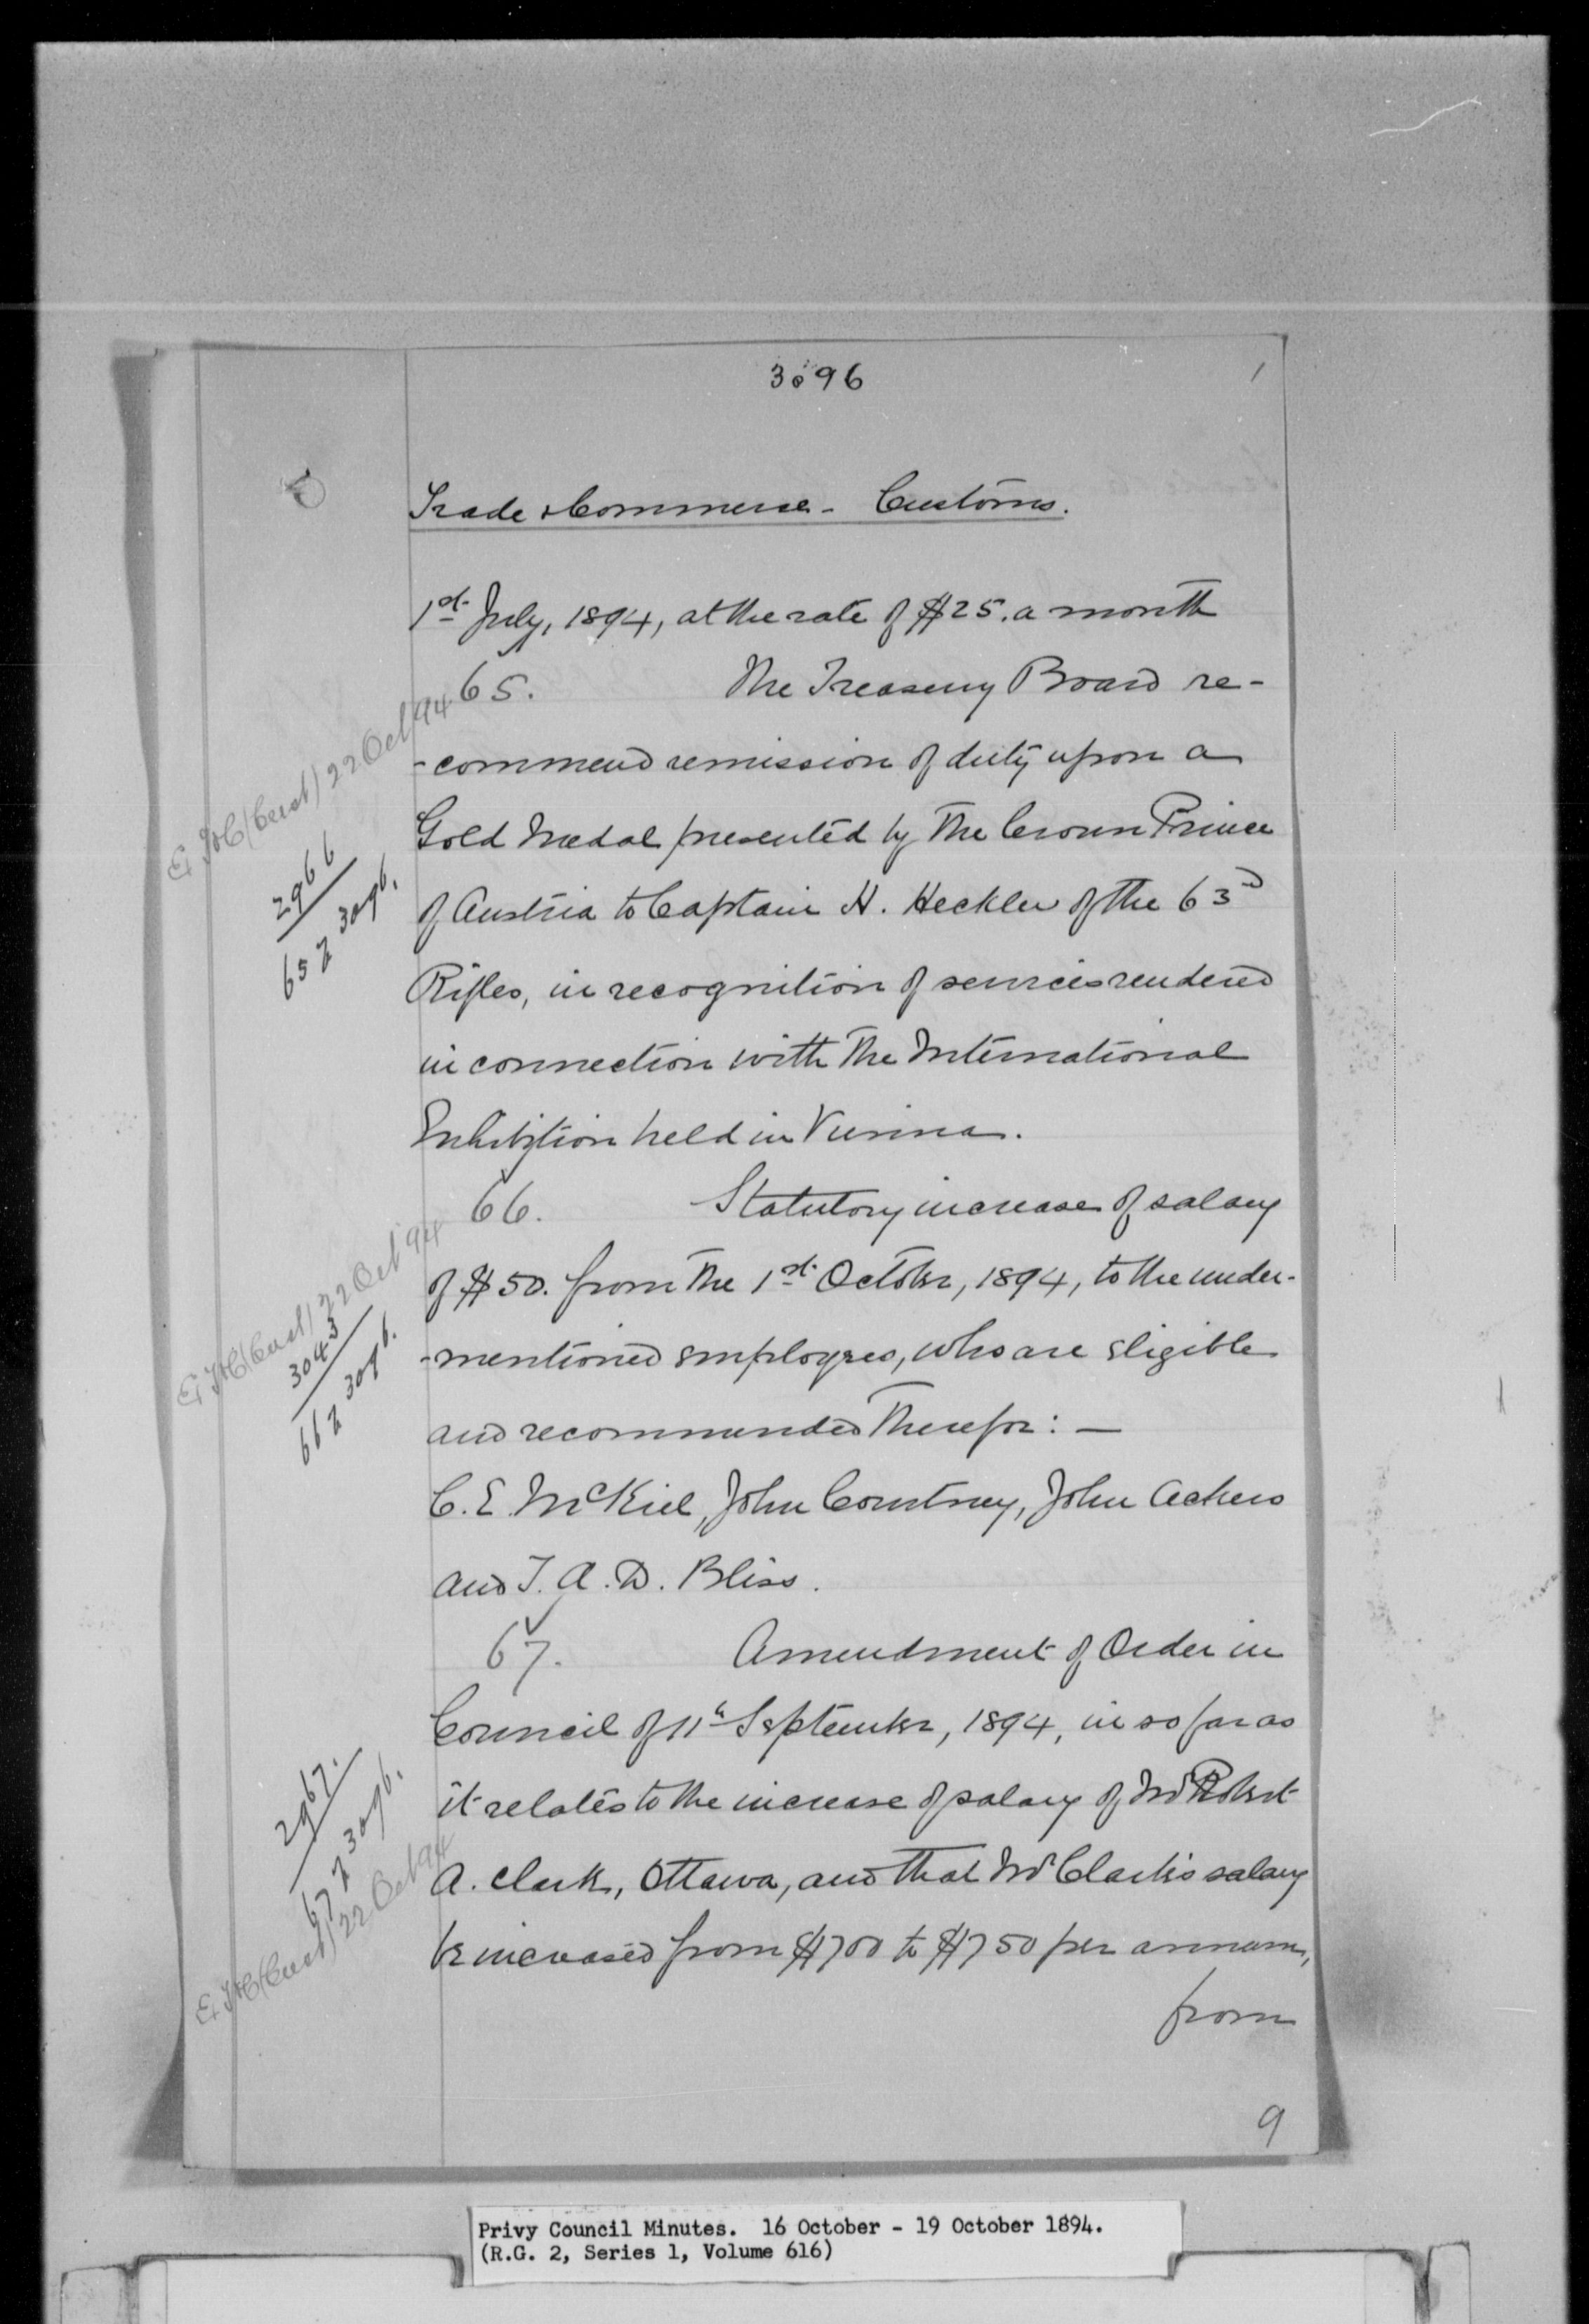 3096
Trade & Commerce - Customs.
1st July, 1894, at the rate of $25. a month
65. The Treasury Board re-
-commend remission of duty upon a
Gold Medal presented by the Crown Prince
of Austria to Captain H. Heckler of the 63d
Rifles, in recognition of services rendered
in connection with the International
Exhibition held in Vienna.
66. Statutory increase of salary
of $50. from the 1st October, 1894, to the under-
-mentioned employees, who are eligible
and recommended therefor: —
C. E. McKiel, John Courtney, John Ackers
and T. A. D. Bliss.
67. Amendment of Order in
Council of 11th September, 1894, in so far as
it relates to the increase of salary of Mr Robert
A. Clark, Ottawa, and that Mr Clark's salary
be increased from $700 to $750 per annum,
from
9
22 Oct 94
2966
65 3096.
22 Oct 94
3043
66 3096.
2967.
67 3096.
22 Oct 94
Privy Council Minutes. 16 October - 19 October 1894.
(R.G. 2, Series 1, Volume 616)